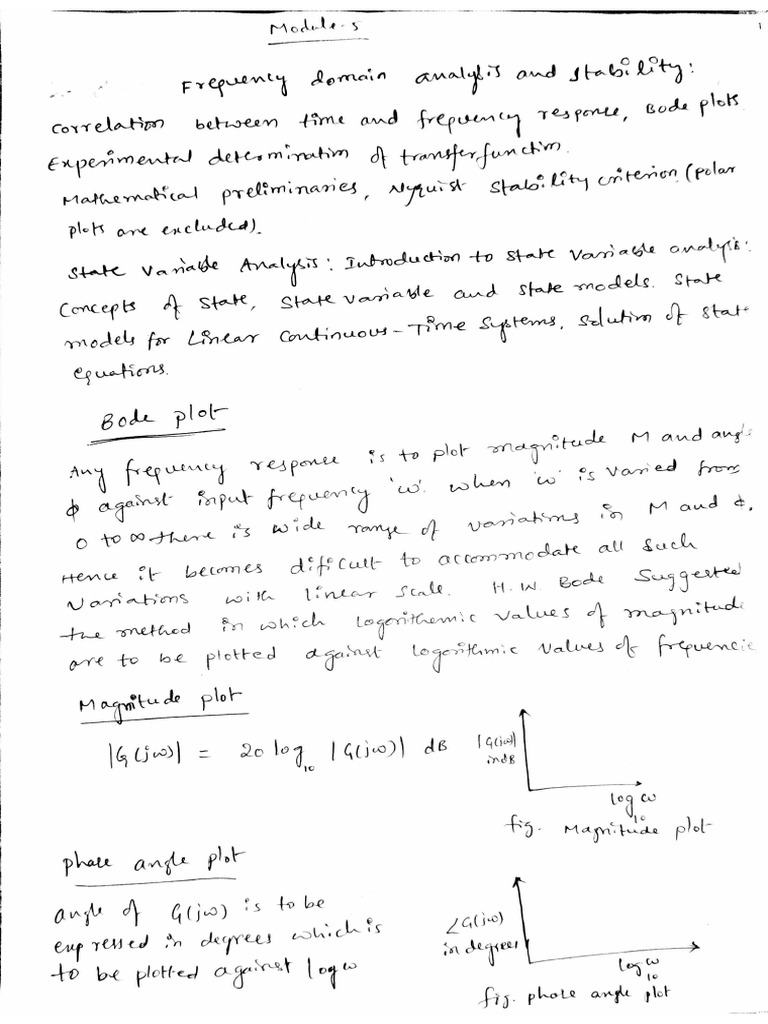 Module-5
1
Frequency domain analysis and stability:
Correlation between time and frequency response, Bode plots
Experimental determination of transfer function.
Mathematical preliminaries, Nyquist stability criterion (polar
plots are excluded).
State Variable Analysis: Introduction to state variable analysis:
Concepts of state, state variable and state models. State
models for Linear Continuous-Time Systems, Solution of stat
equations.
Bode plot
Any frequency response is to plot magnitude M and angl
ϕ against input frequency 'ω'. when 'ω' is varied from
0 to ∞ there is wide range of variations in M and ϕ.
Hence it becomes difficult to accommodate all such
variations with linear scale. H.W. Bode Suggested
the method in which logorithemic values of magnitude
are to be plotted against logorithmic values of frequencie
Magnitude plot
|G(jω)| = 20 log₁₀ |G(jω)| dB
|G(jω)|
in dB
log₁₀ ω
fig. Magnitude plot
phase angle plot
angle of G(jω) is to be
expressed in degrees which is
to be plotted against log ω
∠G(jω)
in degrees
log₁₀ ω
fig. phase angle plot